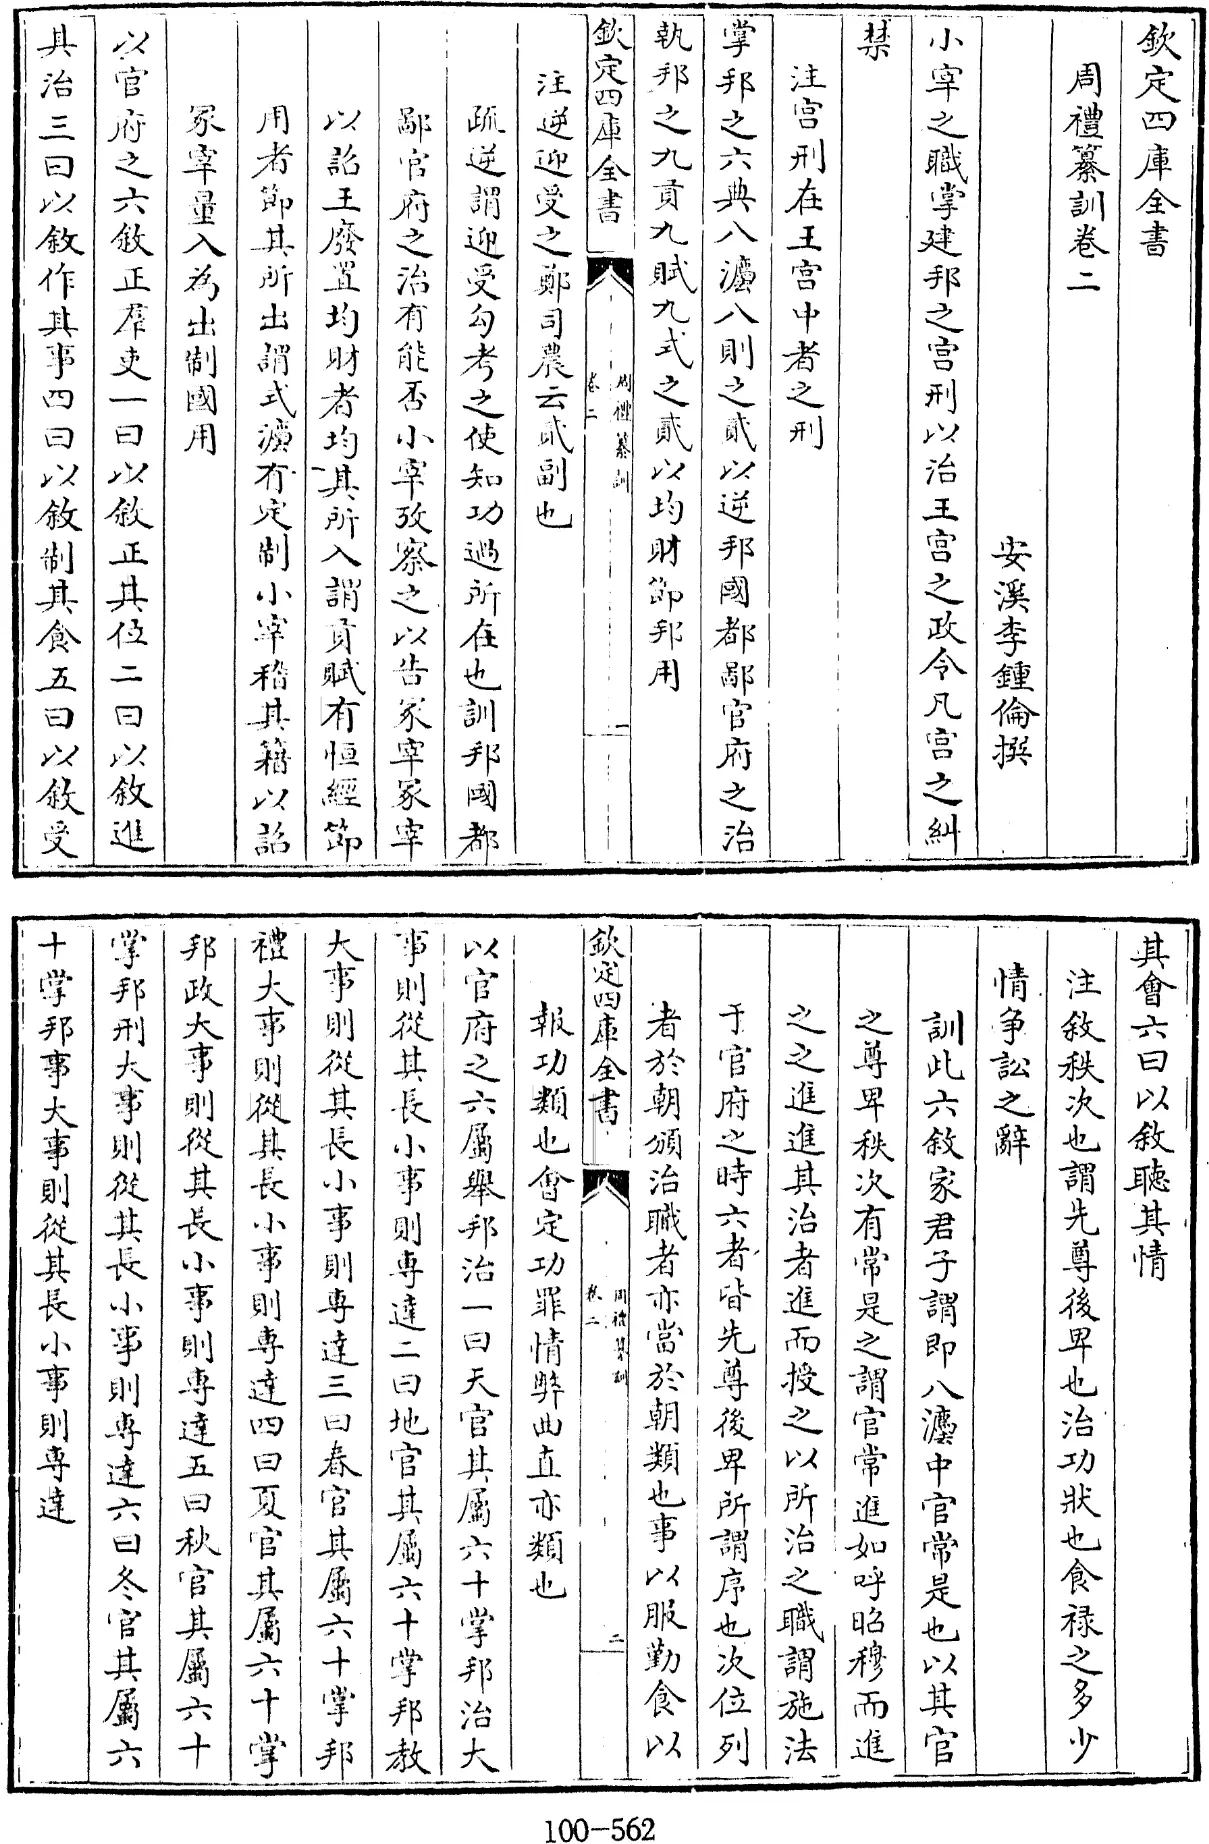 欽定四庫全書
周禮纂訓卷二
安溪李鍾倫撰
小宰之職掌建邦之宮刑以治王宮之政令凡宮之糾
禁
注宮刑在王宮中者之刑
掌邦之六典八灋八則之貳以逆邦國都鄙官府之治
執邦之九貢九賦九式之貳以均財節邦用
欽定四庫全書
周禮纂訓
卷二
一
注逆迎受之鄭司農云貳副也
疏逆謂迎受勾考之使知功過所在也訓邦國都
鄙官府之治有能否小宰攷察之以告冢宰冢宰
以詔王廢置均財者均其所入謂貢賦有恒經節
用者節其所出謂式灋有定制小宰稽其籍以詔
冢宰量入為出制國用
以官府之六敘正羣吏一曰以敘正其位二曰以敘進
其治三曰以敘作其事四曰以敘制其食五曰以敘受
其會六曰以敘聽其情
注敘秩次也謂先尊後卑也治功狀也食祿之多少
情爭訟之辭
訓此六敘家君子謂即八灋中官常是也以其官
之尊卑秩次有常是之謂官常進如呼昭穆而進
之之進進其治者進而授之以所治之職謂施法
于官府之時六者皆先尊後卑所謂序也次位列
者於朝頒治職者亦當於朝類也事以服勤食以
欽定四庫全書
周禮纂訓
卷二
二
報功類也會定功罪情弊曲直亦類也
以官府之六屬舉邦治一曰天官其屬六十掌邦治大
事則從其長小事則專達二曰地官其屬六十掌邦教
大事則從其長小事則專達三曰春官其屬六十掌邦
禮大事則從其長小事則專達四曰夏官其屬六十掌
邦政大事則從其長小事則專達五曰秋官其屬六十
掌邦刑大事則從其長小事則專達六曰冬官其屬六
十掌邦事大事則從其長小事則專達
100-562